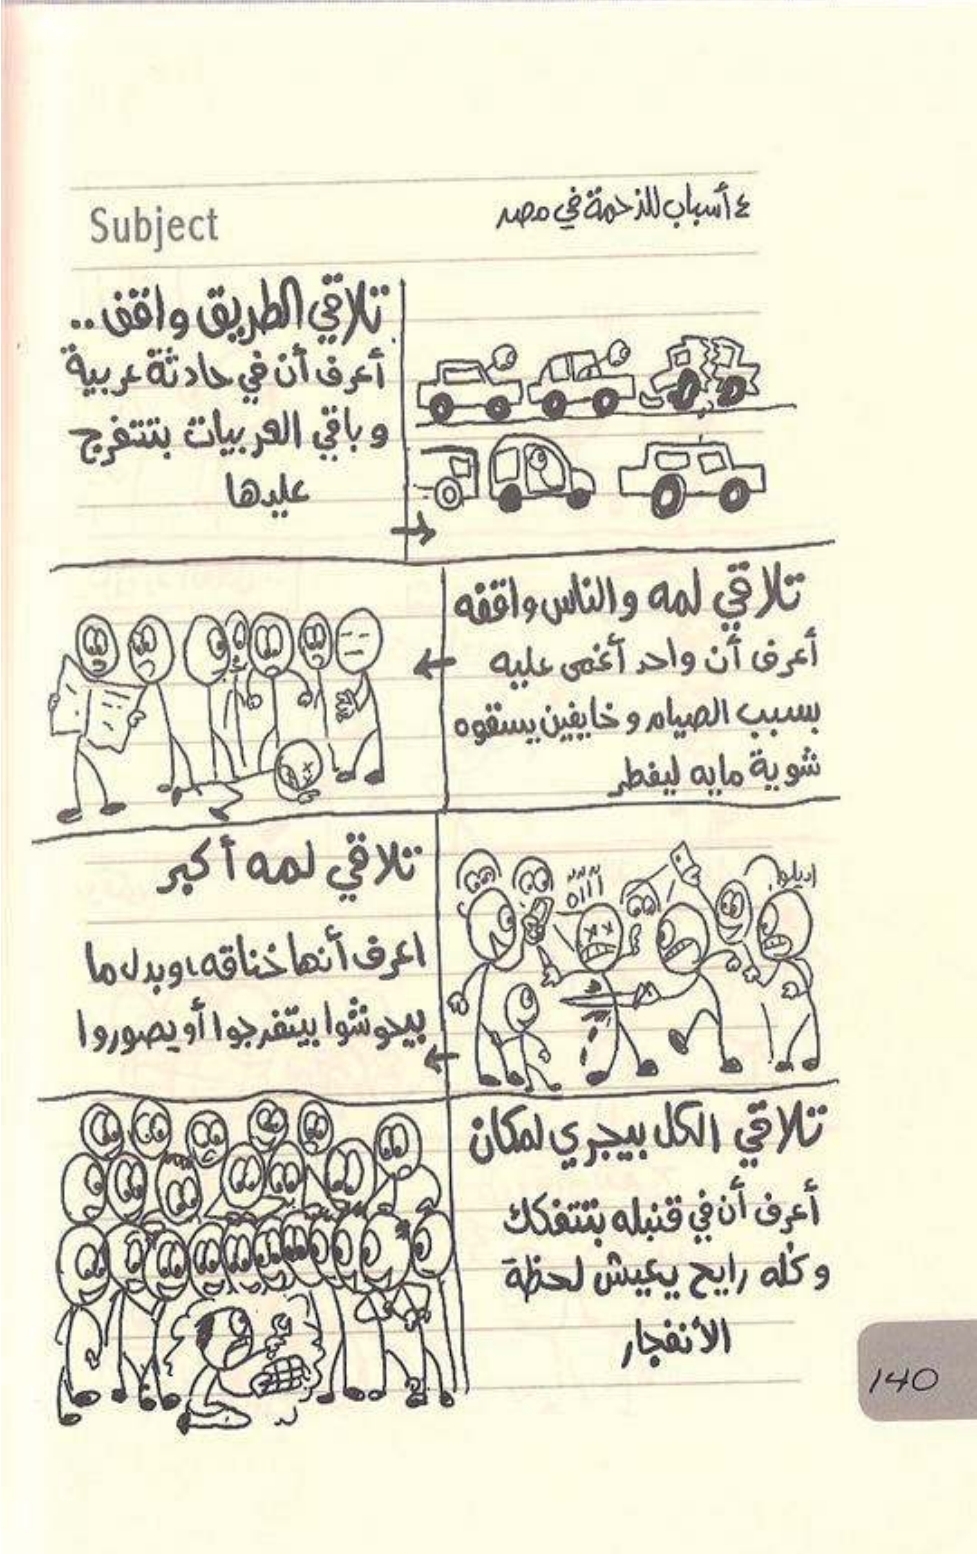 Subject
٤ أسباب للزحمة في مصر
تلاقي الطريق واقف..
أعرف أن في حادثة عربية
و باقي العربيات بتتفرج
عليها
تلاقي لمه والناس واقفه
أعرف أن واحد أغمى عليه
بسبب الصيام و خايفين يسقوه
شوية مايه ليفطر
تلاقي لمه أكبر
اعرف أنها خناقه، وبدل ما
بيحوشوا بيتفرجوا أو يصوروا
اديلوا
تلاقي الكل بيجري لمكان
أعرف أن في قنبله بتتفكك
و كله رايح يعيش لحظة
الأنفجار
140